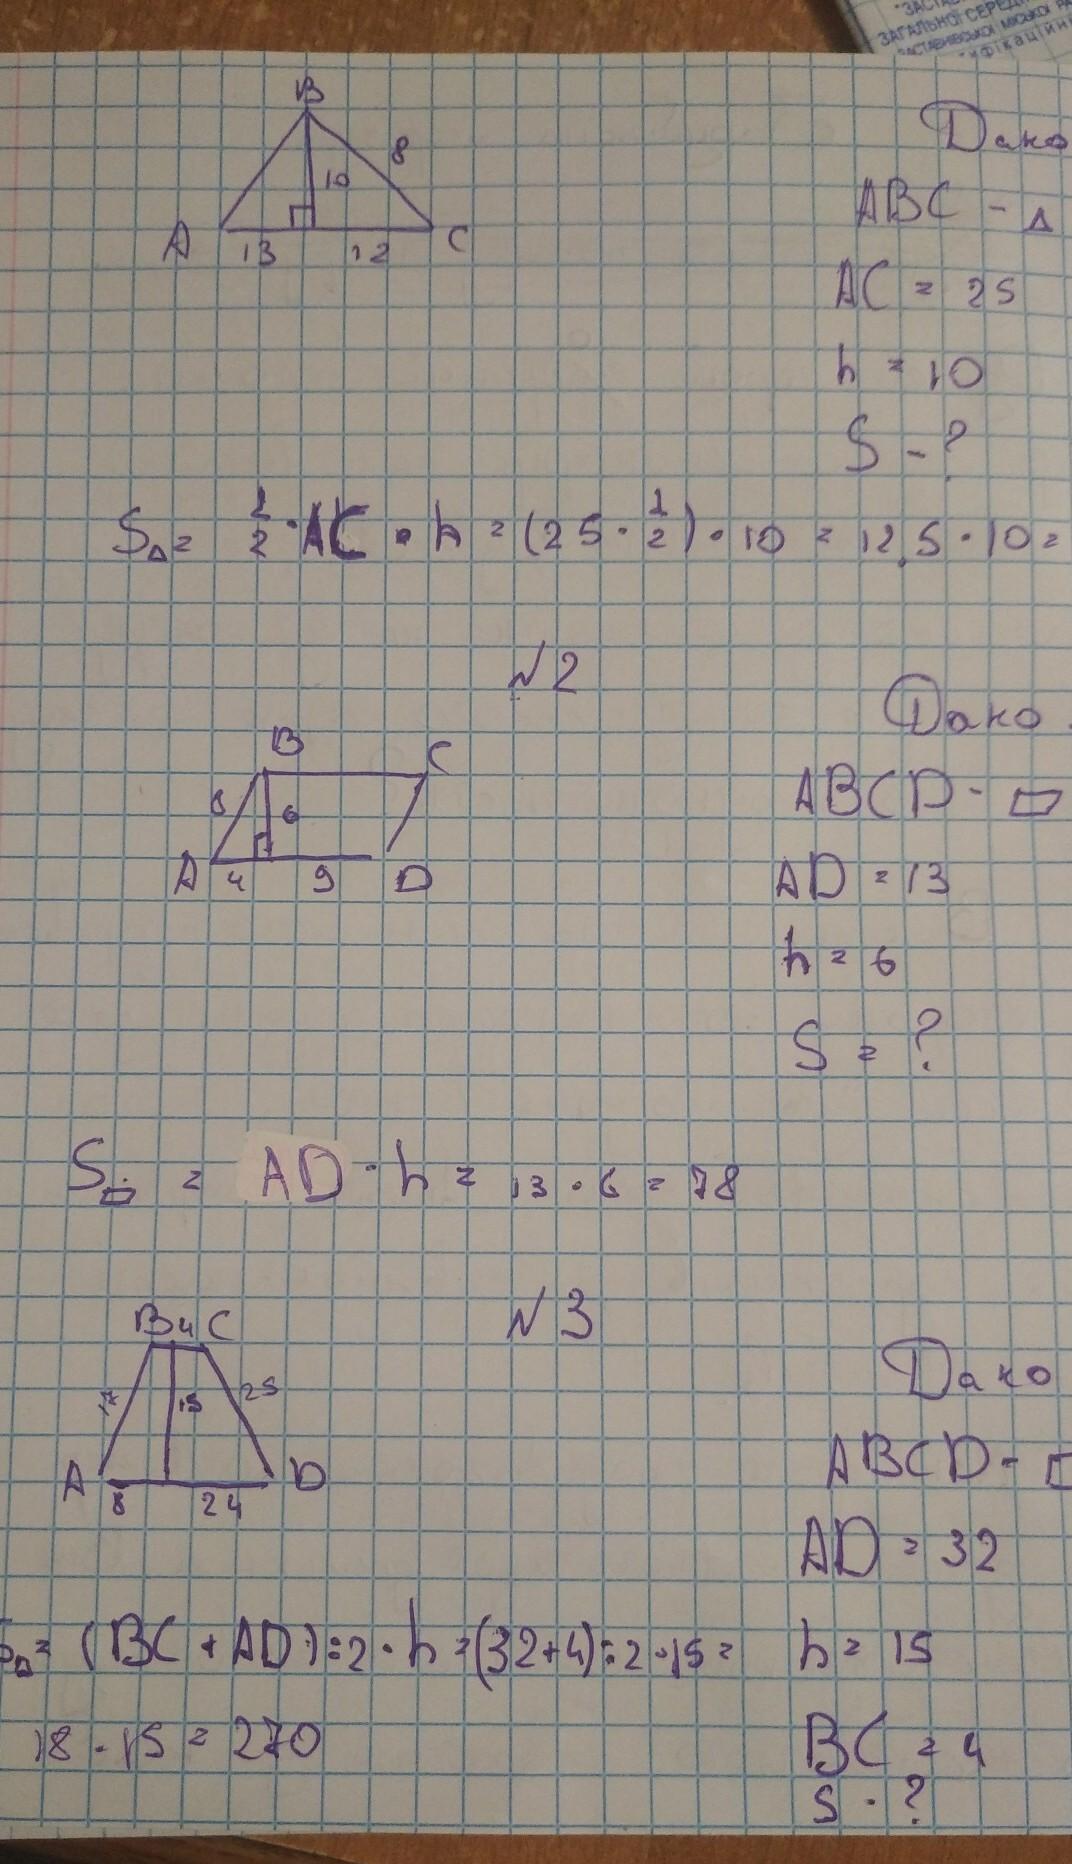 "ЗАСТАВ
ЗАГАЛЬНОЇ СЕРЕД
ЗАСТАВНІВСЬКОЇ МІСЬКОЇ РА
ифікаційн
B
8
10
A 13 12 C
Дано
ABC - △
AC = 25
h = 10
S - ?
S△ = 1/2 · AC · h = (25 · 1/2) · 10 = 12,5 · 10 =
№2
B C
6
A 4 9 D
Дано
ABCD - ▱
AD = 13
h = 6
S = ?
S▱ = AD · h = 13 · 6 = 78
№3
B 4 C
17 15 25
A 8 24 D
Дано
ABCD -
AD = 32
h = 15
BC = 4
S - ?
S = (BC + AD) : 2 · h = (32+4) : 2 · 15 =
18 · 15 = 270